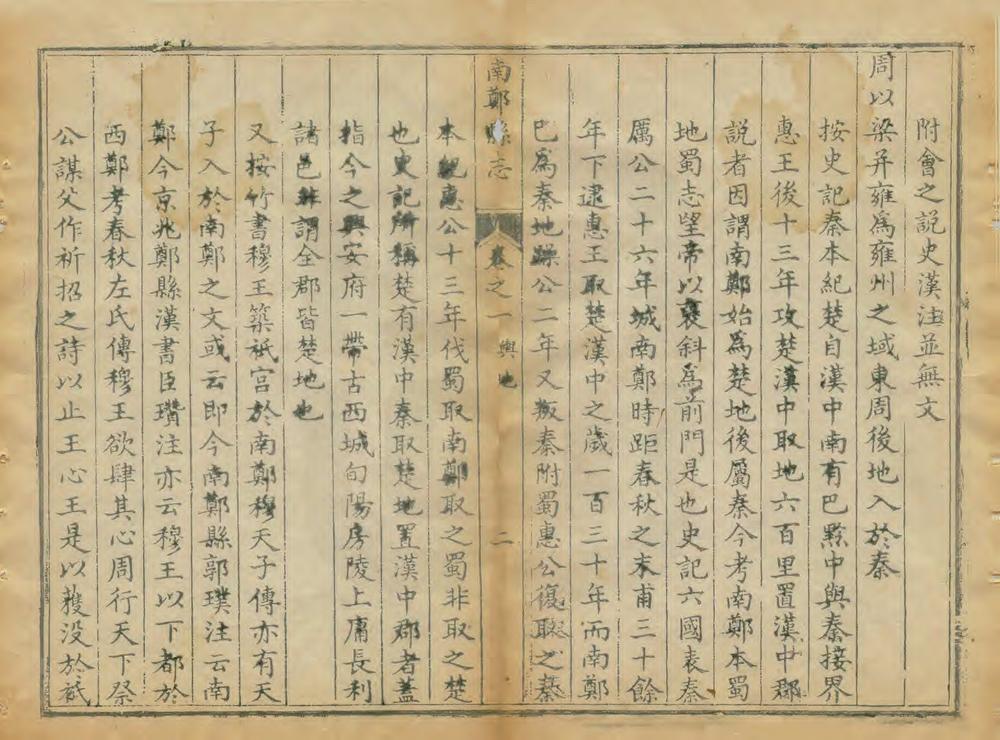 附會之説史漢注並無文
周以梁并雍爲雍州之域東周後地入於秦
按史記秦本紀楚自漢中南有巴黔中與秦接界
惠王後十三年攻楚漢中取地六百里置漢中郡
説者因謂南鄭始爲楚地後屬秦今考南鄭本蜀
地蜀志望帝以襃斜爲前門是也史記六國表秦
厲公二十六年城南鄭時距春秋之末甫三十餘
年下逮惠王取楚漢中之歲一百三十年而南鄭
巴爲秦地躁公二年又叛秦附蜀惠公復取之秦
南鄭縣志 卷之一 輿地 二
本紀惠公十三年伐蜀取南鄭取之蜀非取之楚
也史記所稱楚有漢中秦取楚地置漢中郡者蓋
指今之興安府一帶古西城旬陽房陵上庸長利
諸邑非謂全郡皆楚地也
又按竹書穆王築祇宫於南鄭穆天子傳亦有天
子入於南鄭之文或云即今南鄭縣郭璞注云南
鄭今京兆鄭縣漢書臣瓚注亦云穆王以下都於
西鄭考春秋左氏傳穆王欲肆其心周行天下祭
公謀父作祈招之詩以止王心王是以獲没於祇